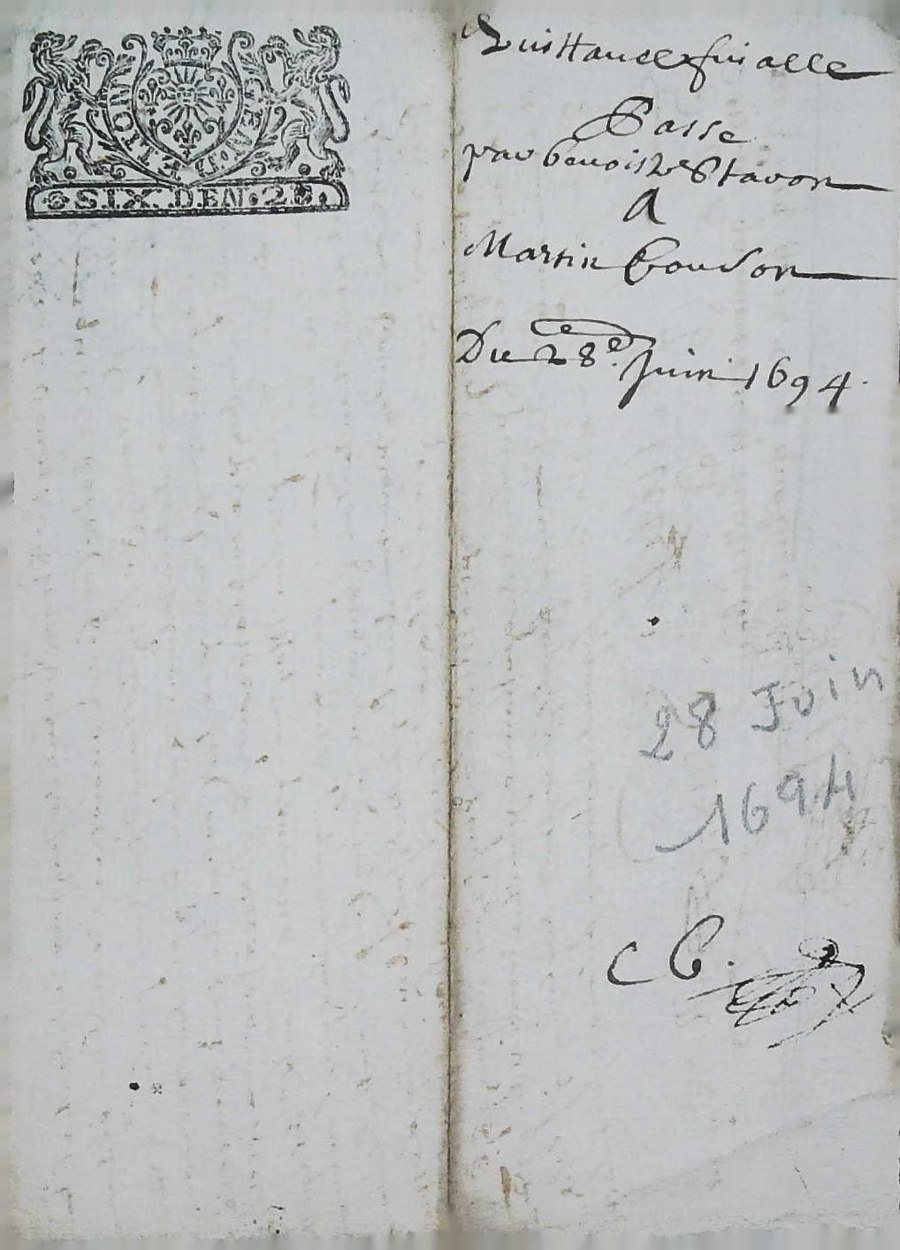 GENER DE LION
SIX. DEN. 2 F.
Quittance finalle
Passe
par benoist Stavon
A
Martin Boudon
Du 28e Juin 1694.
28 Juin
1694
C B.